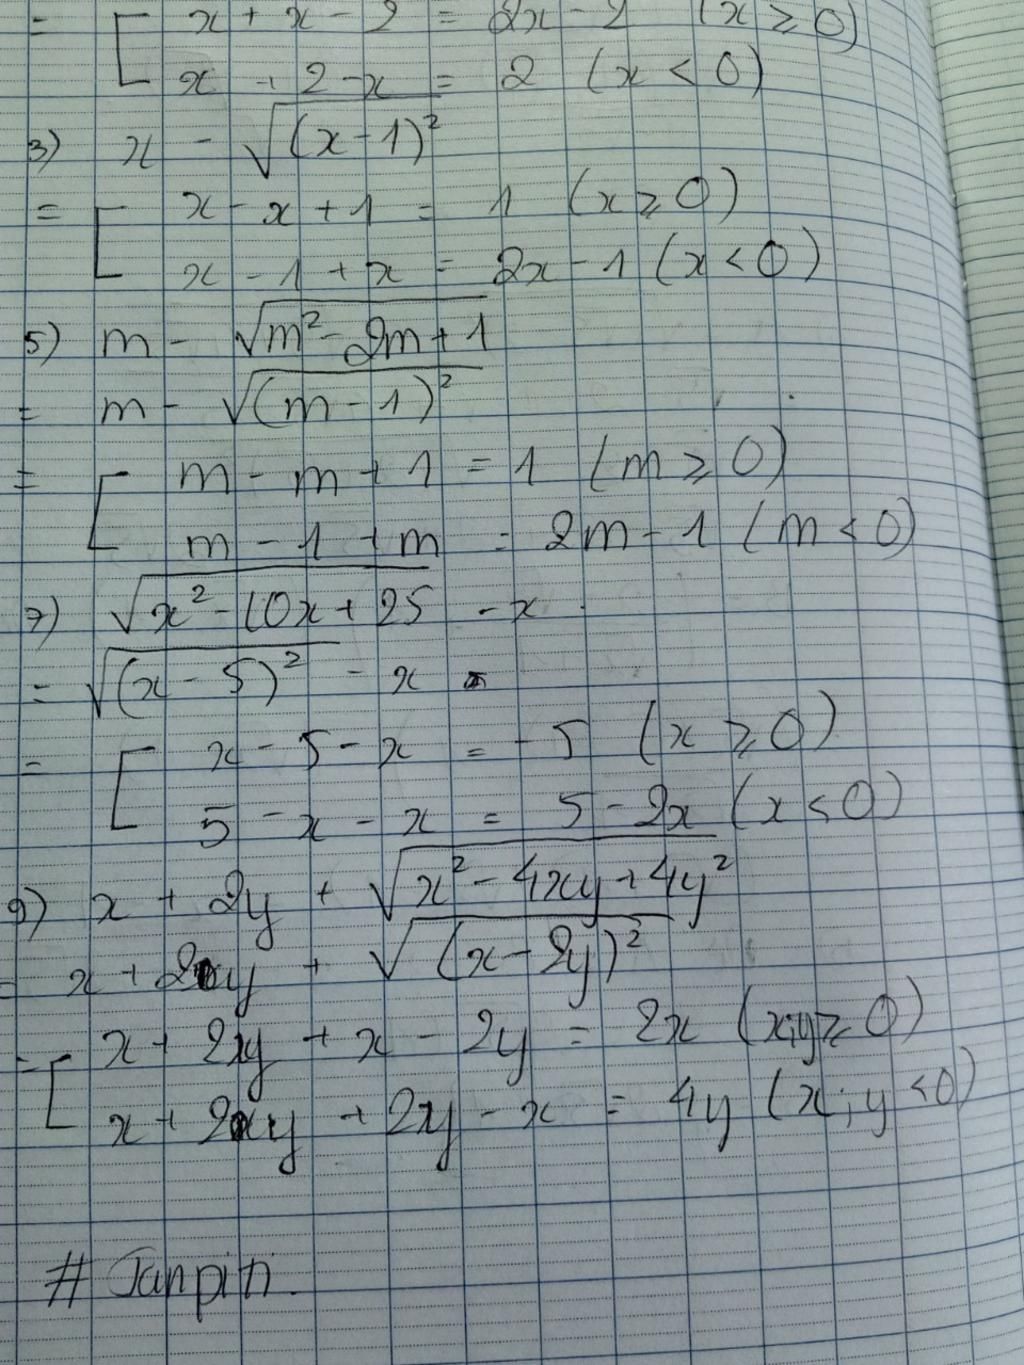 = [ x + x - 2 = 2x - 2 (x ≥ 0)
x + 2 - x = 2 (x < 0)
3) x - √(x-1)²
= [ x - x + 1 = 1 (x ≥ 0)
x - 1 + x = 2x - 1 (x < 0)
5) m - √m² - 2m + 1
= m - √(m - 1)²
= [ m - m + 1 = 1 (m ≥ 0)
m - 1 + m = 2m - 1 (m < 0)
7) √x² - 10x + 25 - x
= √(x - 5)² - x
= [ x - 5 - x = -5 (x ≥ 0)
5 - x - x = 5 - 2x (x < 0)
9) x + 2y + √x² - 4xy + 4y²
= x + 2y + √(x - 2y)²
= [ x + 2y + x - 2y = 2x (x;y ≥ 0)
x + 2y + 2y - x = 4y (x;y < 0)
# Janpiti.